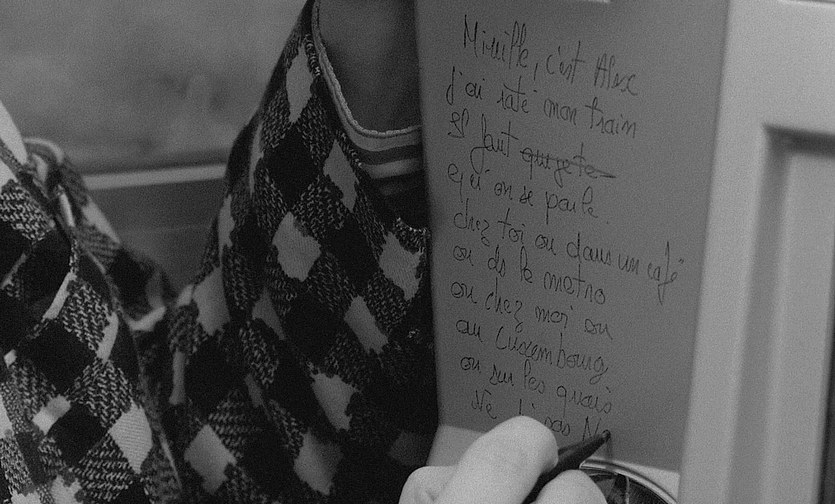 Mireille, c'est Alex
J'ai raté mon train
Il faut que je te
qu'on se parle.
chez toi ou dans un café
ou ds le metro
ou chez moi ou
au Luxembourg
ou sur les quais
Ne pas